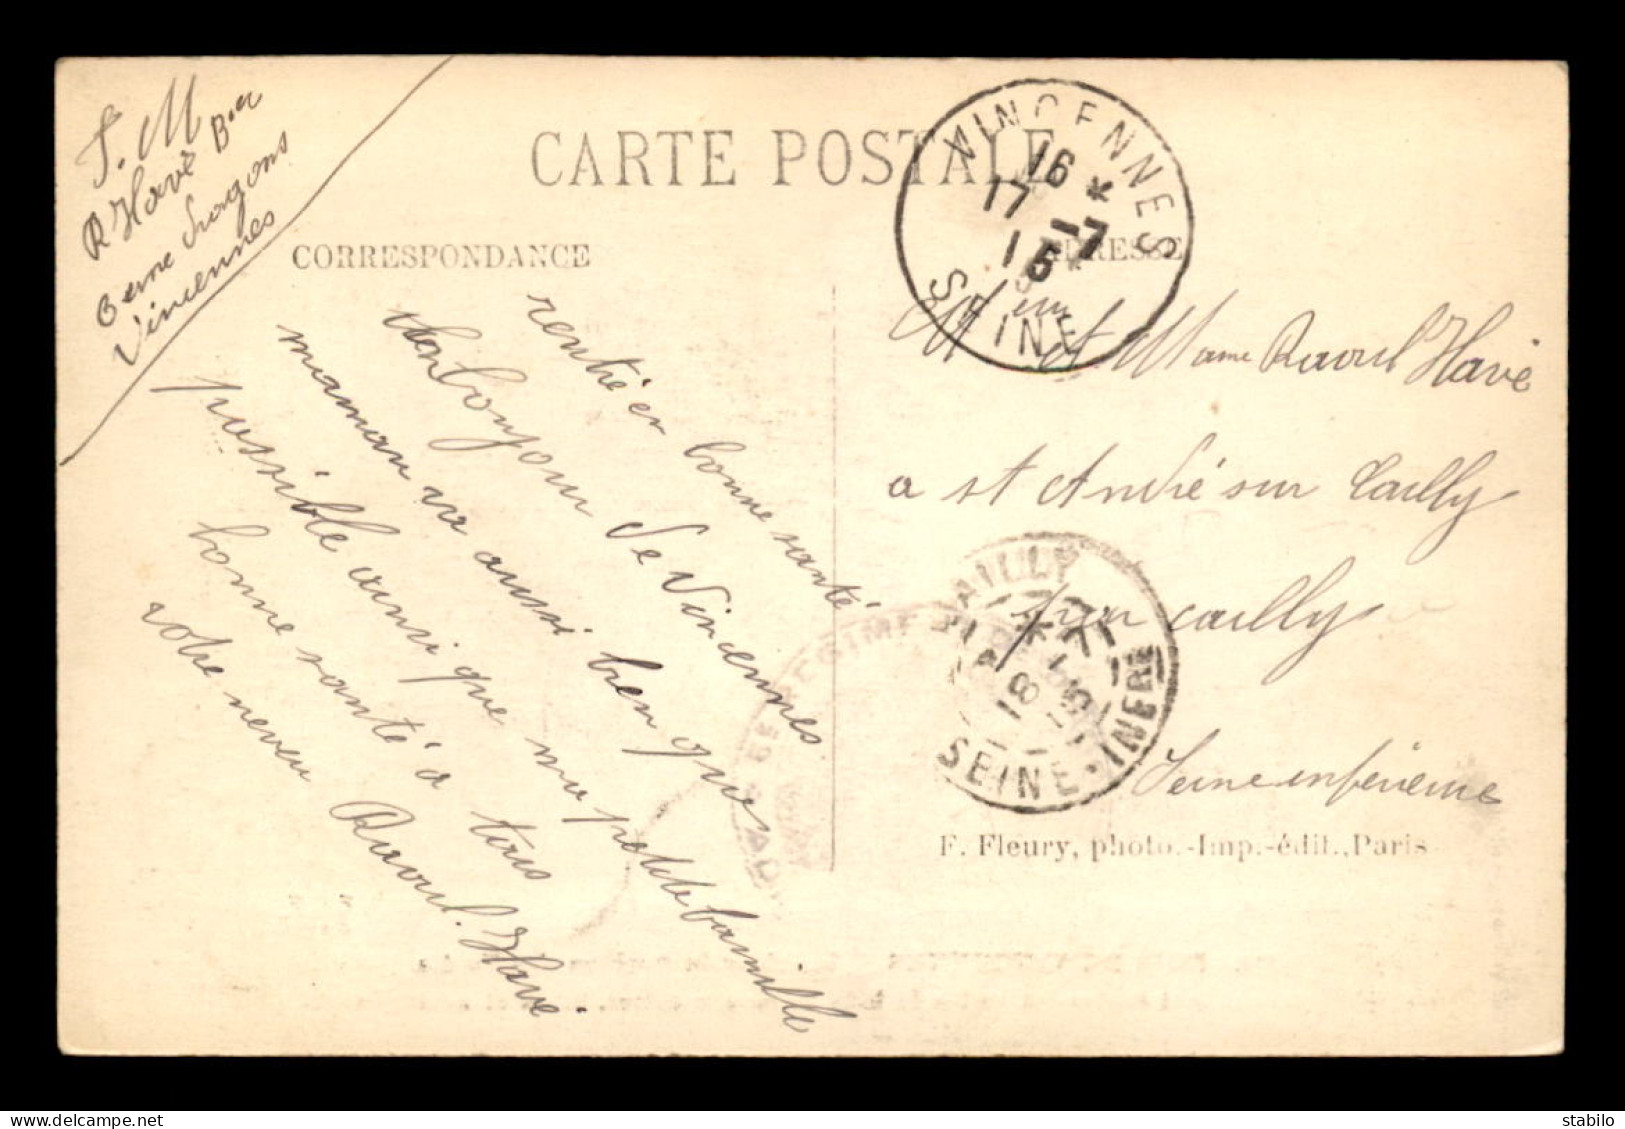 F. M
R Havé Bier
3eme Dragons
Vincennes
CARTE POSTALE
CORRESPONDANCE
ADRESSE
VINCENNES
16 *
17 -7
15 *
SEINE
rentré en bonne santé
Bonbonjour de Vincennes
maman va aussi bien que
possible ainsi que ma petite famille
bonne santé a tous
votre neveu Raoul. Havé.
Mr et Mame Raoul Havé
a st André sur Cailly
par cailly
Seine inférieure
CAILLY
18 -7
15
SEINE-INFRE
REGIMENT DE
F. Fleury, photo.-Imp.-édit., Paris
stabilo